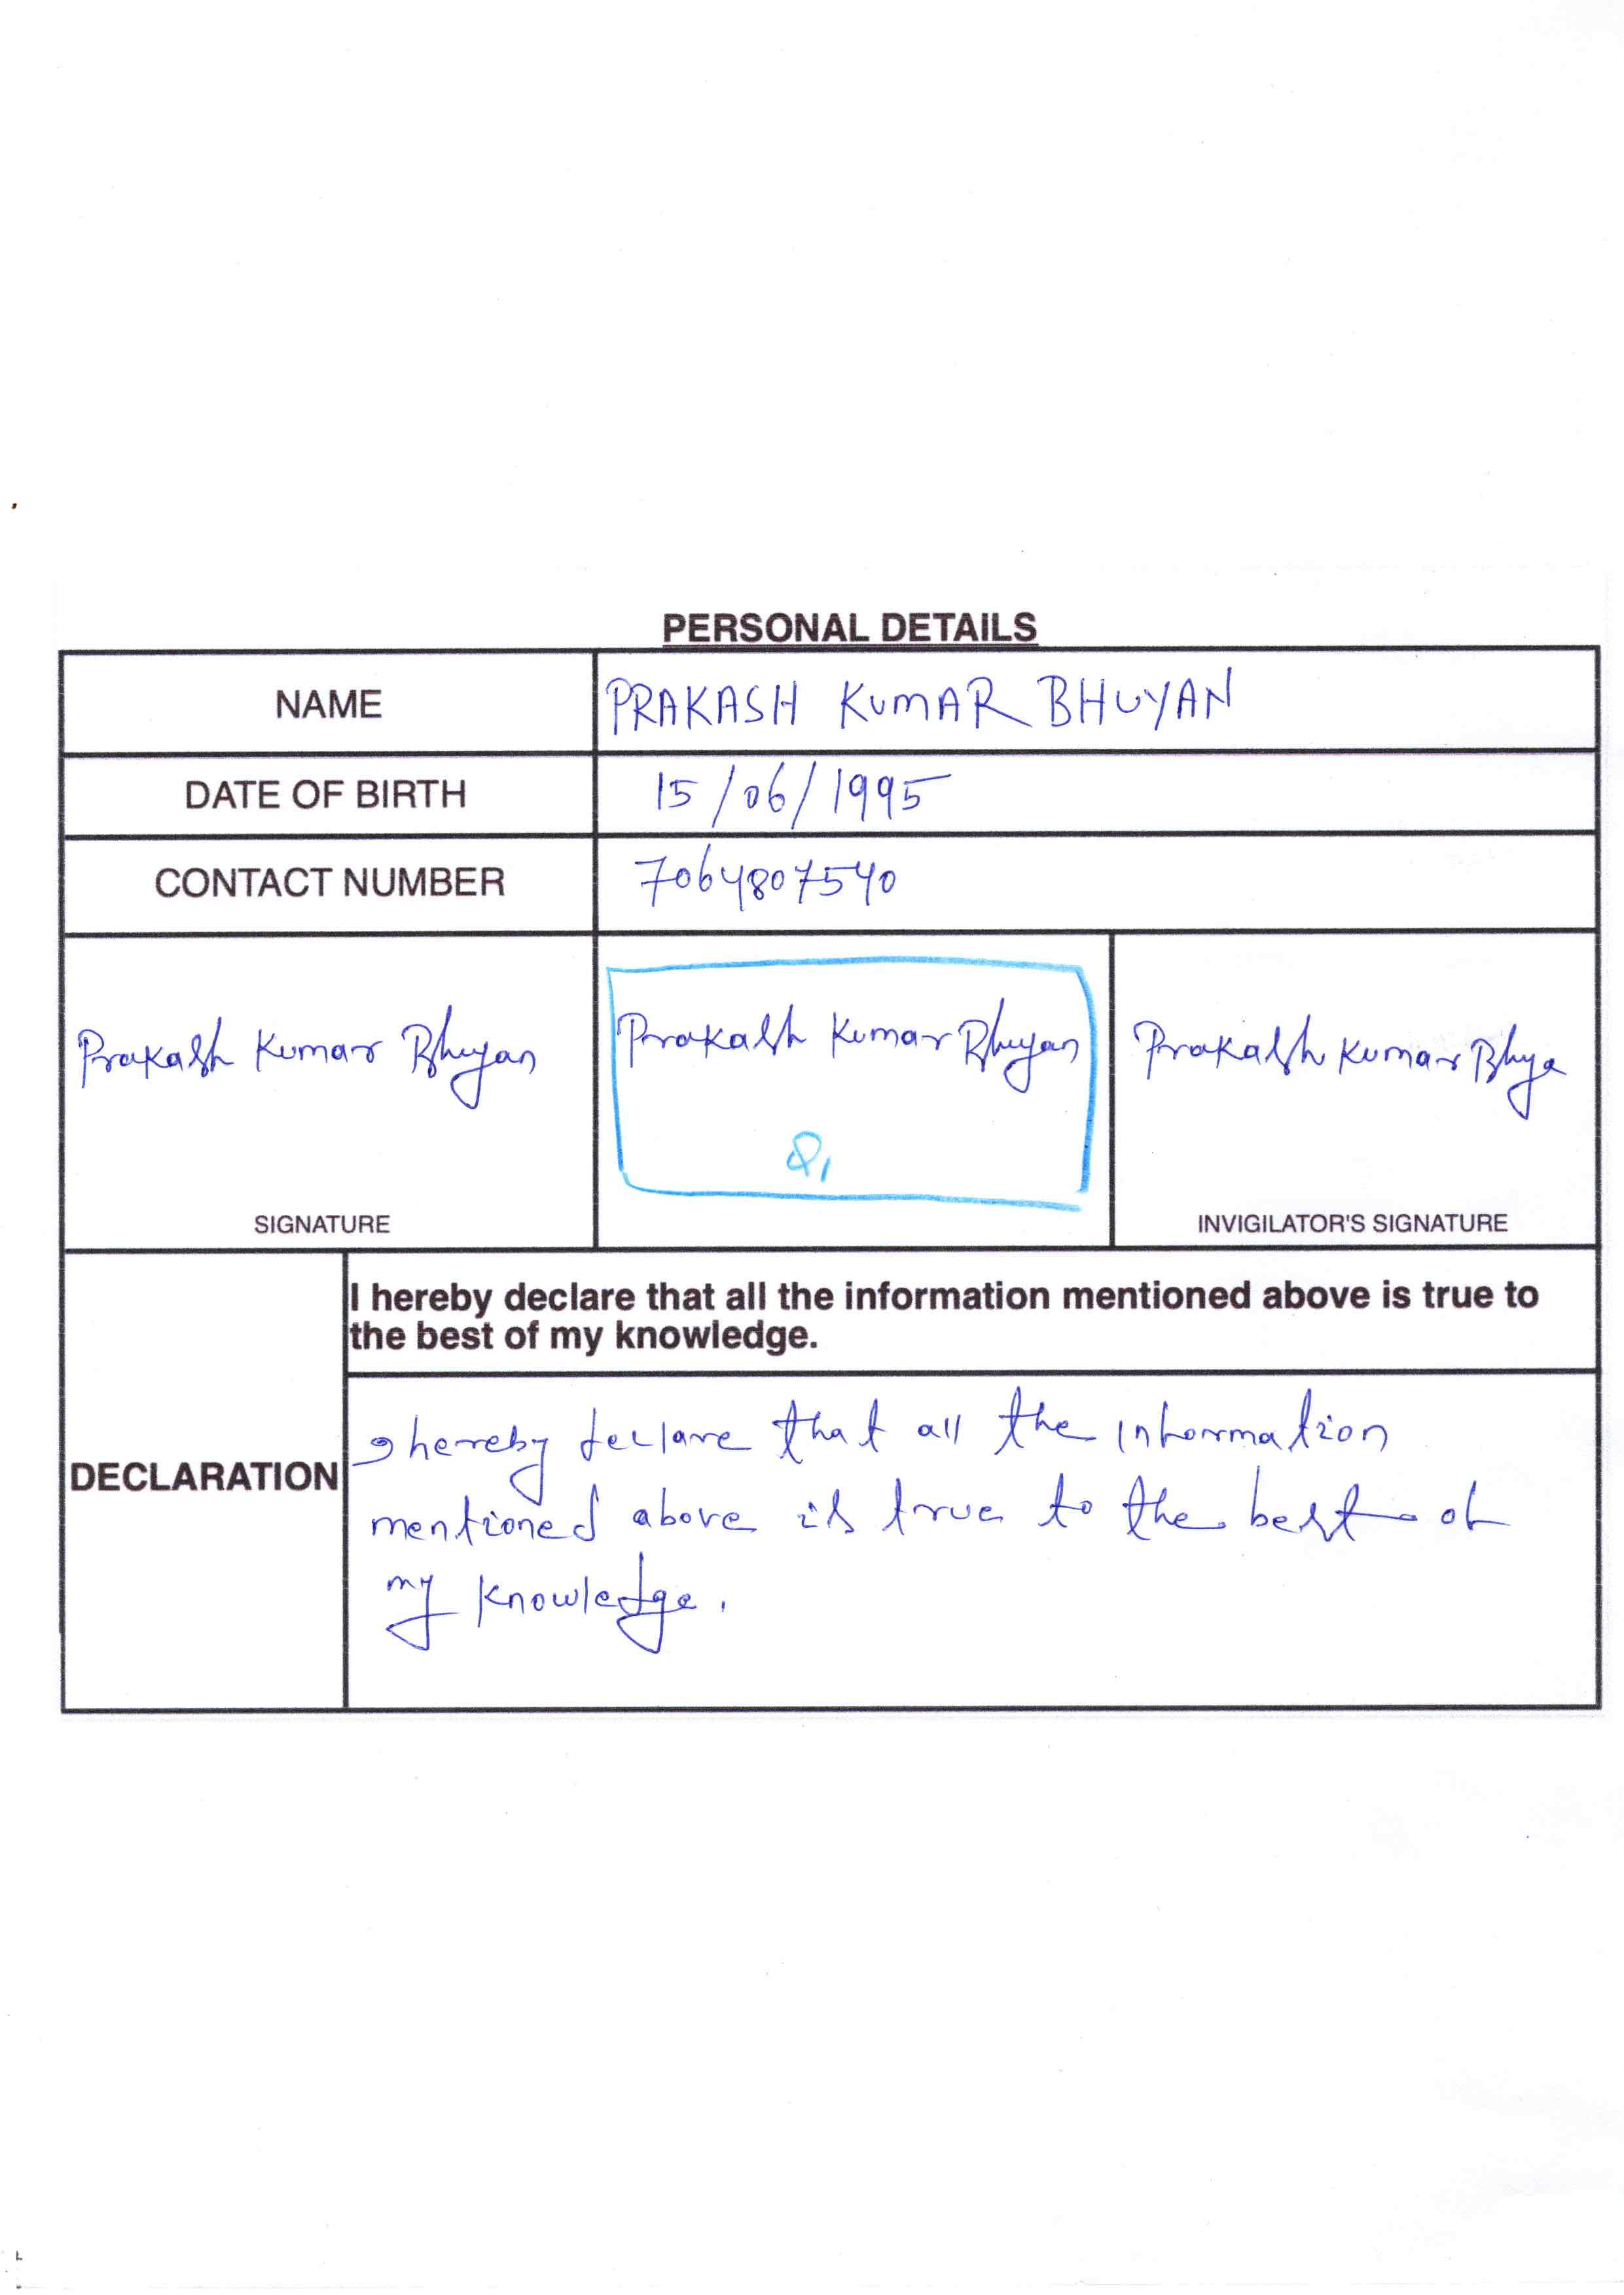 PERSONAL DETAILS
NAME PRAKASH KUMAR BHUYAN
DATE OF BIRTH 15/06/1995
CONTACT NUMBER 7064807540
Prakash Kumar Bhuyan Prakash Kumar Bhuyan Prakash Kumar Bhya
Q1
SIGNATURE INVIGILATOR'S SIGNATURE
I hereby declare that all the information mentioned above is true to
the best of my knowledge.
DECLARATION
I hereby declare that all the information
mentioned above is true to the best of
my knowledge.